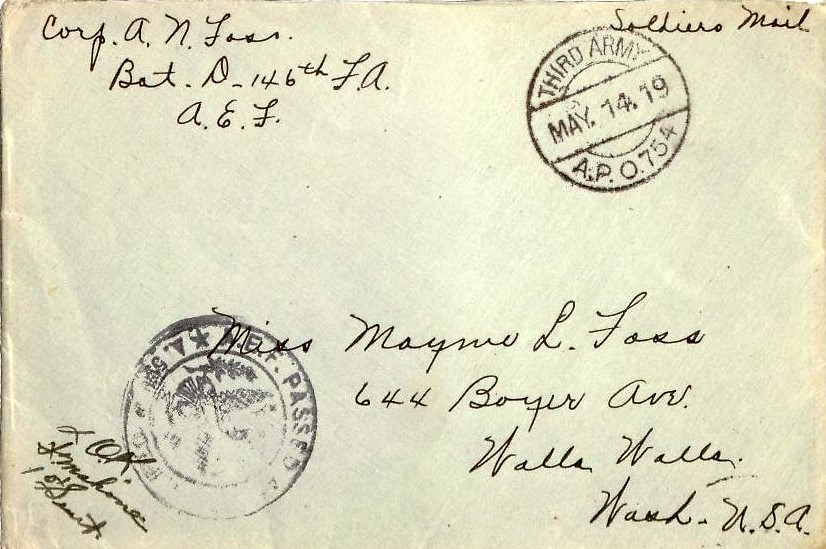 Corp. A. N. Foss.
Bat. D - 146th F.A.
A. E. F.
Soldiers Mail
THIRD ARMY
MAY. 14. 19
A.P.O. 754
Miss Mayme L. Foss
644 Boyer Ave.
Walla Walla.
Wash. U.S.A.
A.E.F. PASSED AS
O.K.
1st Lieut